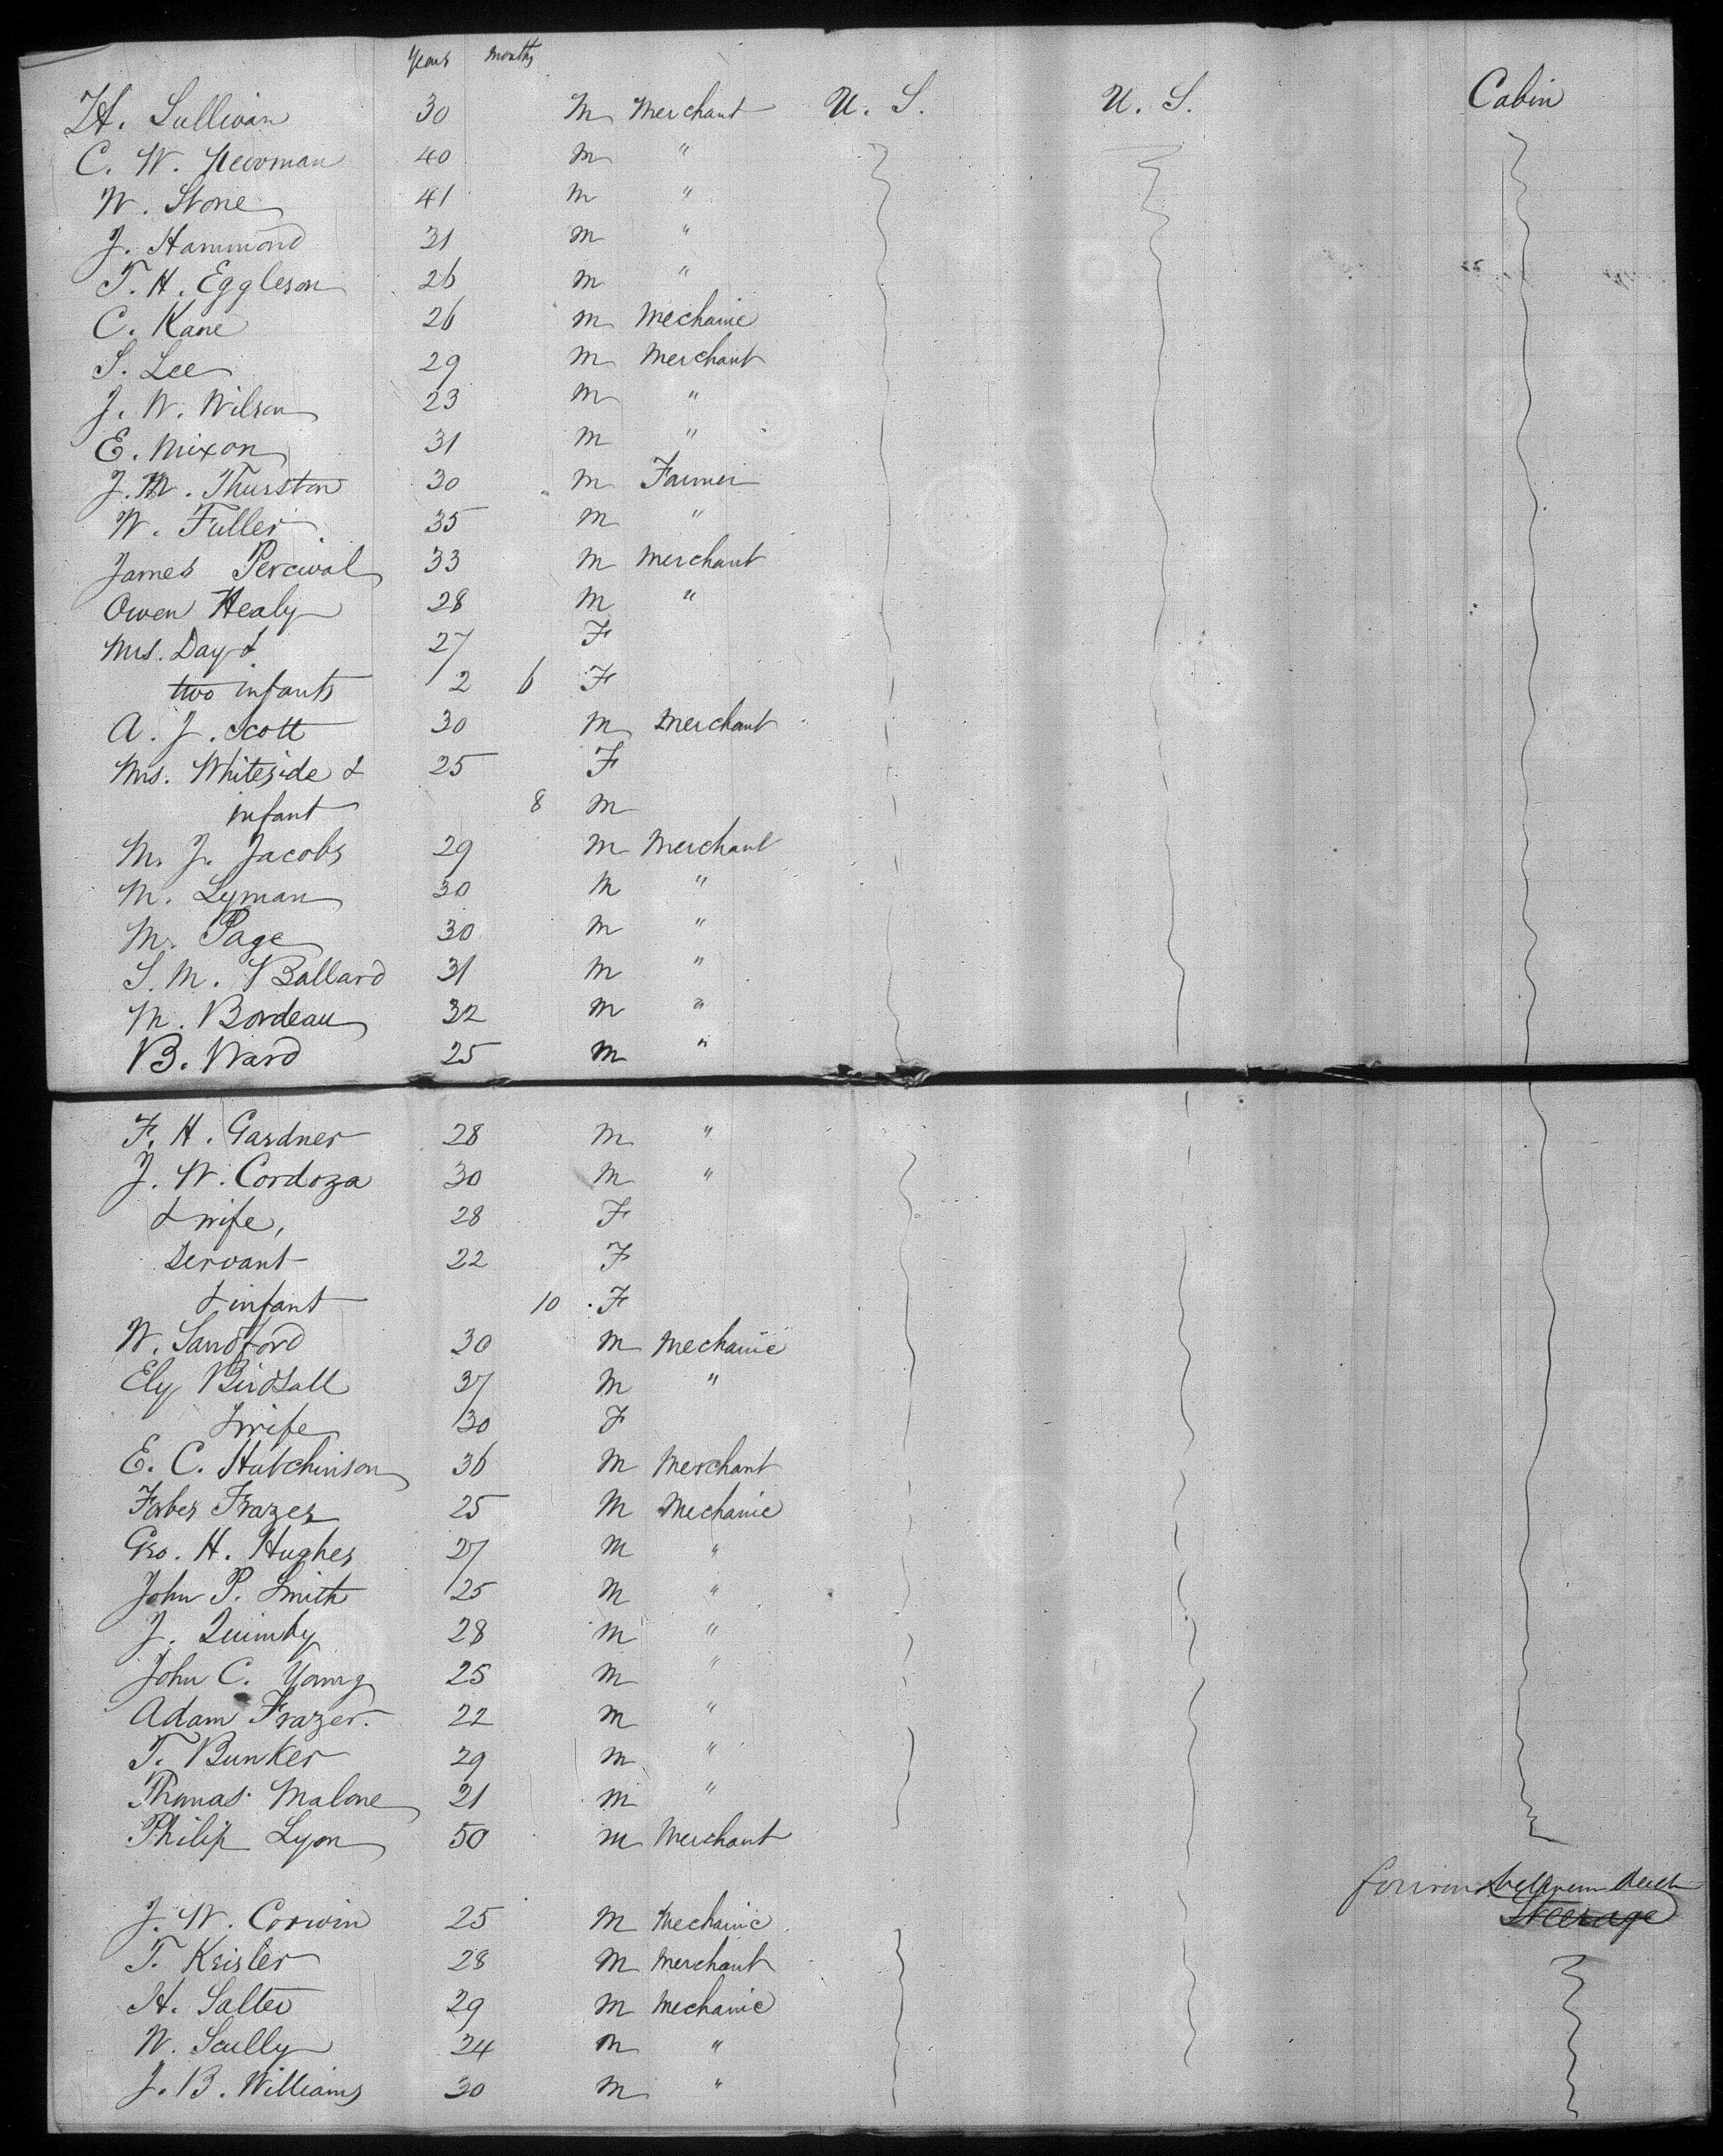 Years Months
H. Sullivan 30 M Merchant U. S. U. S. Cabin
C. W. Newman 40 M "
W. Stone 41 M "
J. Hammond 31 M "
T. H. Eggleson 26 M "
C. Kane 26 M Mechanic
S. Lee 29 M Merchant
J. W. Wilson 23 M "
E. Nixon 31 M "
J. M. Thurston 30 M Farmer
W. Fuller 35 M "
James Percival 33 M Merchant
Owen Healy 28 M "
Mrs. Day & 27 F
two infants 2 6 F
A. J. Scott 30 M Merchant
Mrs. Whiteside & 25 F
infant 8 M
M. J. Jacobs 29 M Merchant
M. Lyman 30 M "
M. Page 30 M "
S. M. Ballard 31 M "
M. Bordeau 32 M "
B. Ward 25 M "
F. H. Gardner 28 M "
J. W. Cordoza 30 M "
& wife, 28 F
Servant 22 F
& infant 10 F
W. Sandford 30 M Mechanic
Ely Birdsall 37 M "
& wife 30 F
E. C. Hutchinson 36 M Merchant
Forbes Frazer 25 M Mechanic
Geo. H. Hughes 27 M "
John P. Smith 25 M "
J. Quimby 28 M "
John C. Young 25 M "
Adam Frazer. 22 M "
T. Bunker 29 M "
Thomas Malone 21 M "
Philip Lyon 50 M Merchant
J. W. Corwin 25 M Mechanic Steerage
T. Keisler 28 M Merchant
H. Salter 29 M Mechanic
W. Scully 24 M "
J. B. Williams 30 M "